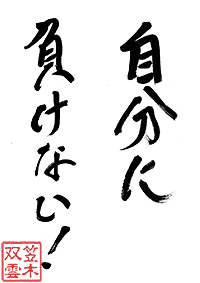 自分に
負けない!
笠木
双雲